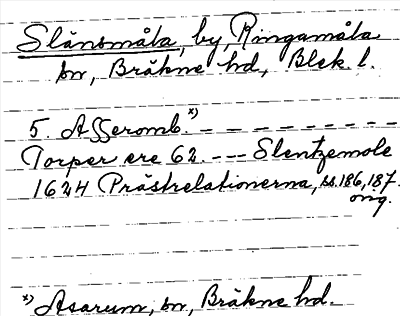 Slänsmåla, by, Ringamåla
sn, Bräkne hd, Blek. l.
5. Asseromb. x) - - - - - - - - -
Torper ere 62. --- Slentzemole
1624 Prästrelationerna, ss. 186, 187.
orig.
x) Asarum, sn, Bräkne hd.